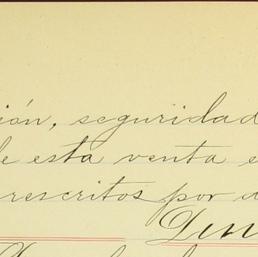 ión, seguridad
de esta venta e
rescritos por d